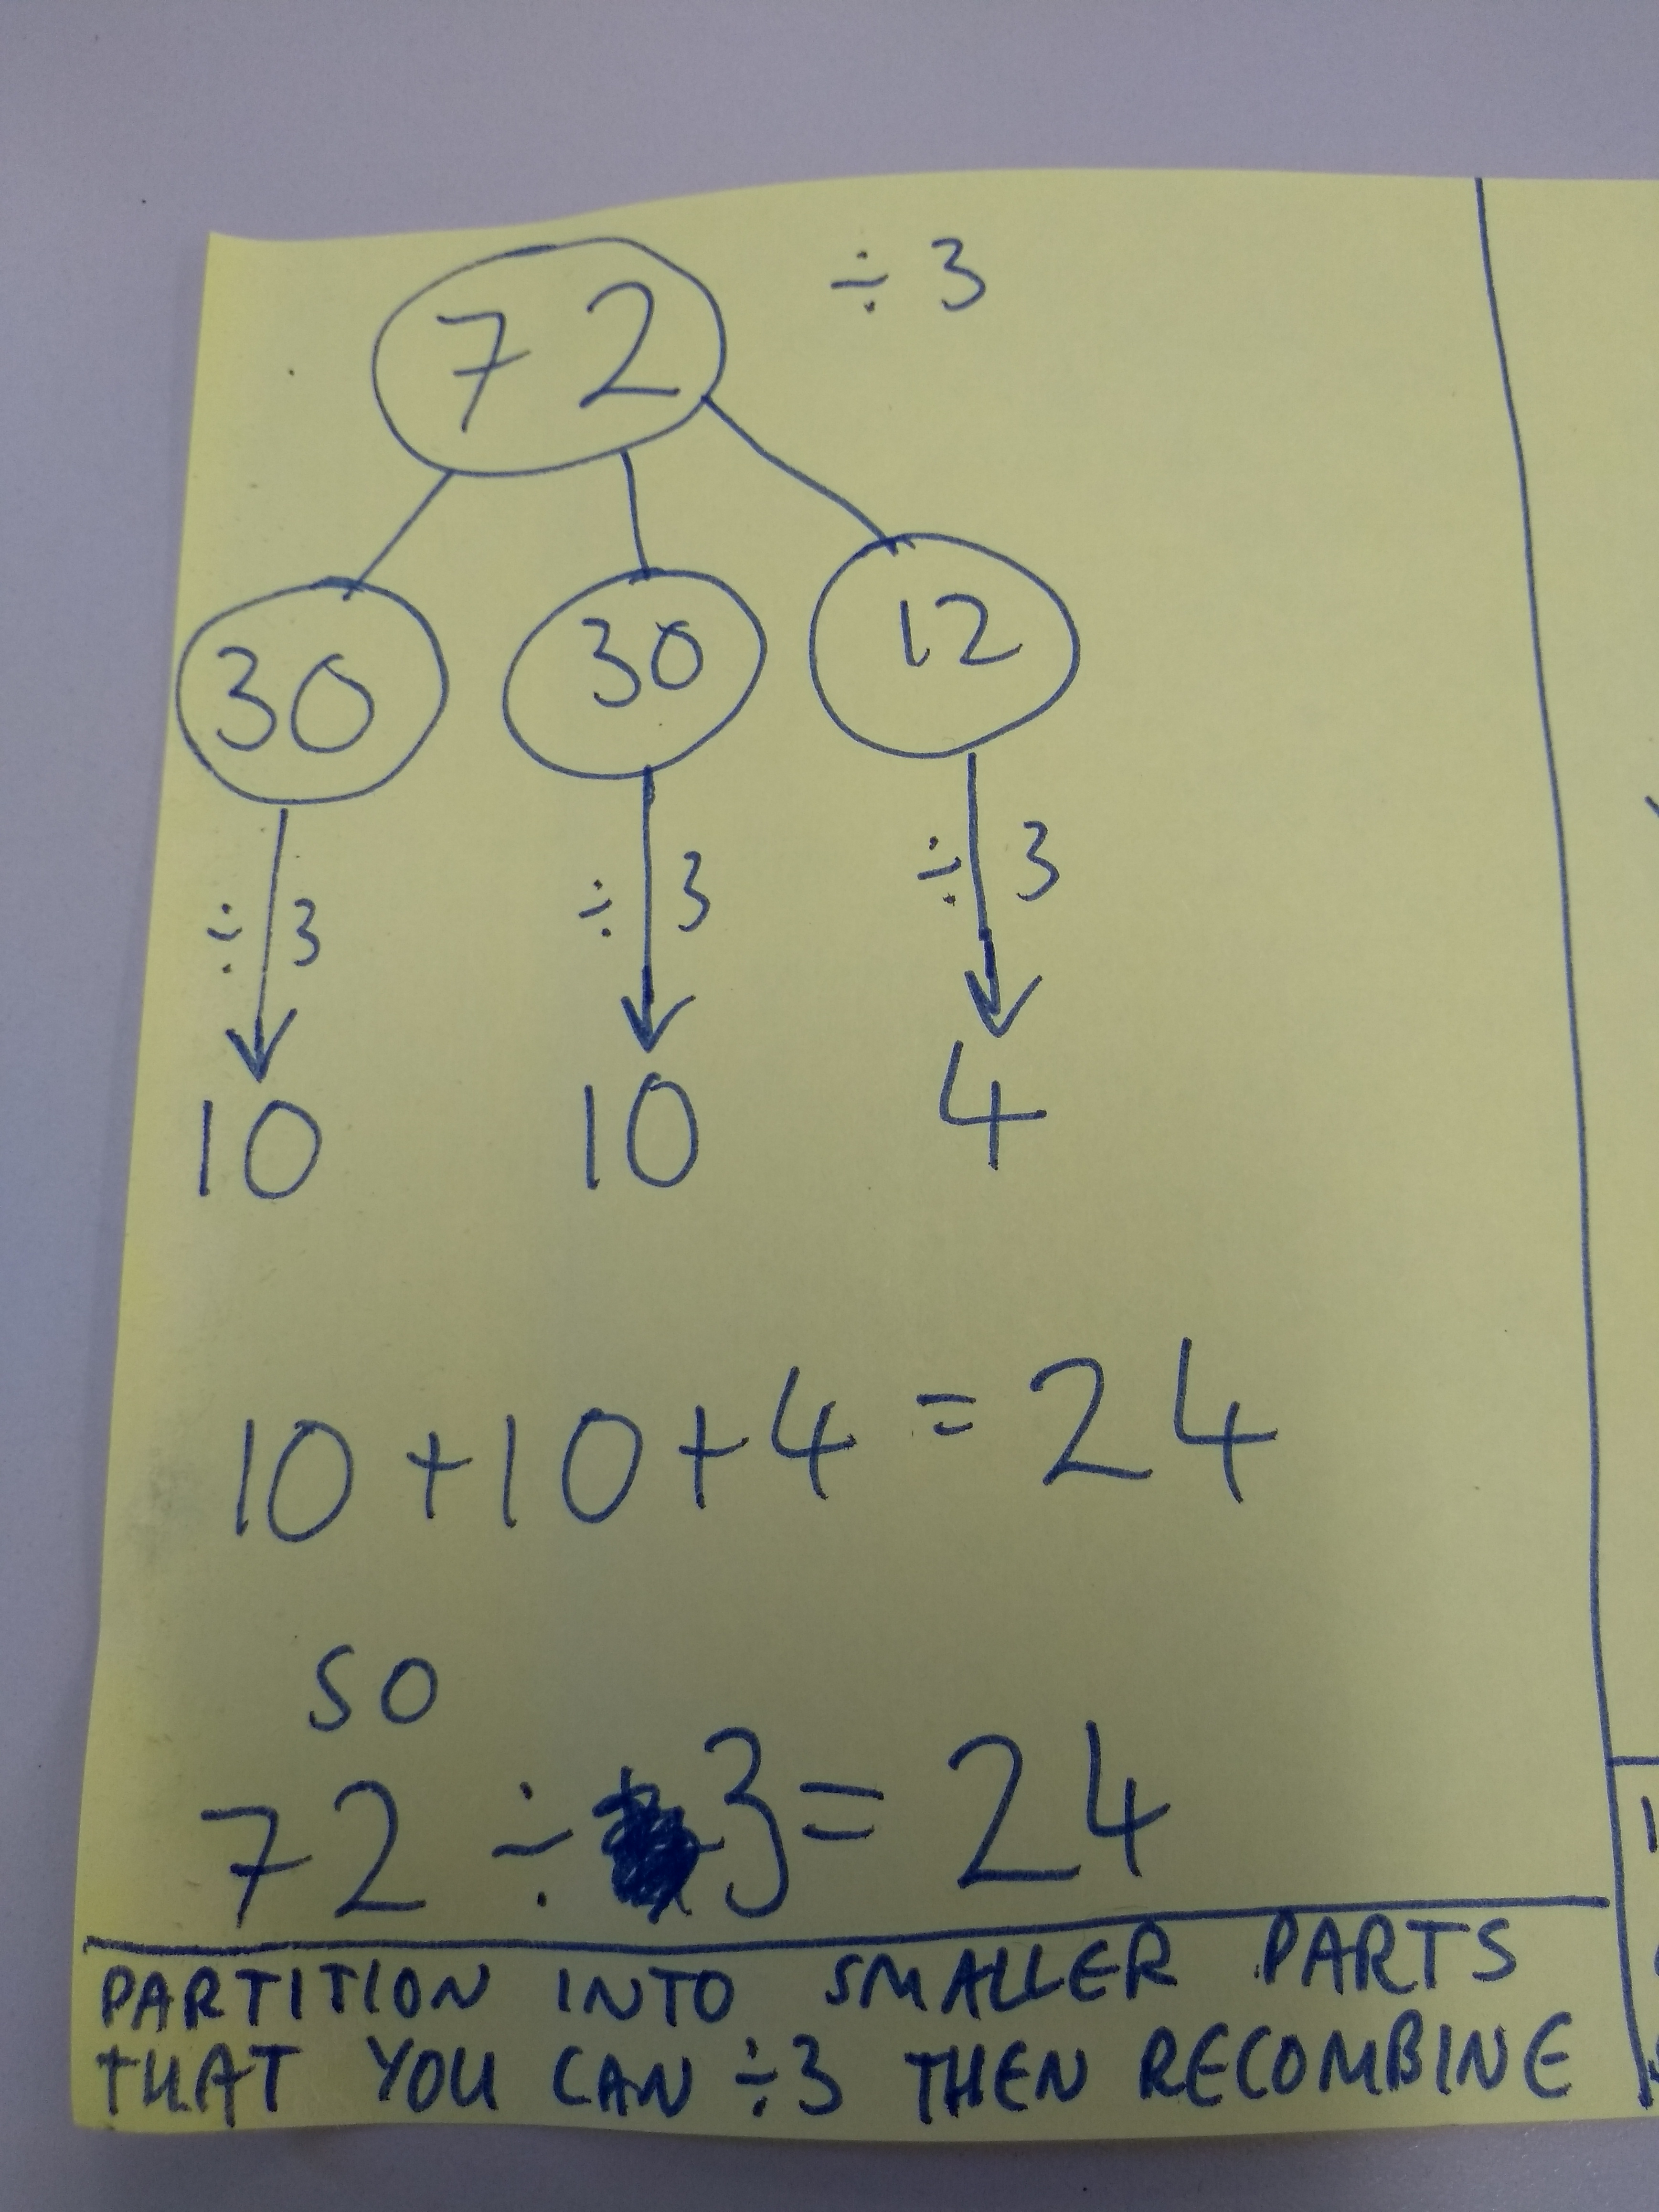 72 ÷ 3
30 30 12
÷ 3 ÷ 3 ÷ 3
10 10 4
10 + 10 + 4 = 24
so
72 ÷ 3 = 24
PARTITION INTO SMALLER PARTS
THAT YOU CAN ÷3 THEN RECOMBINE